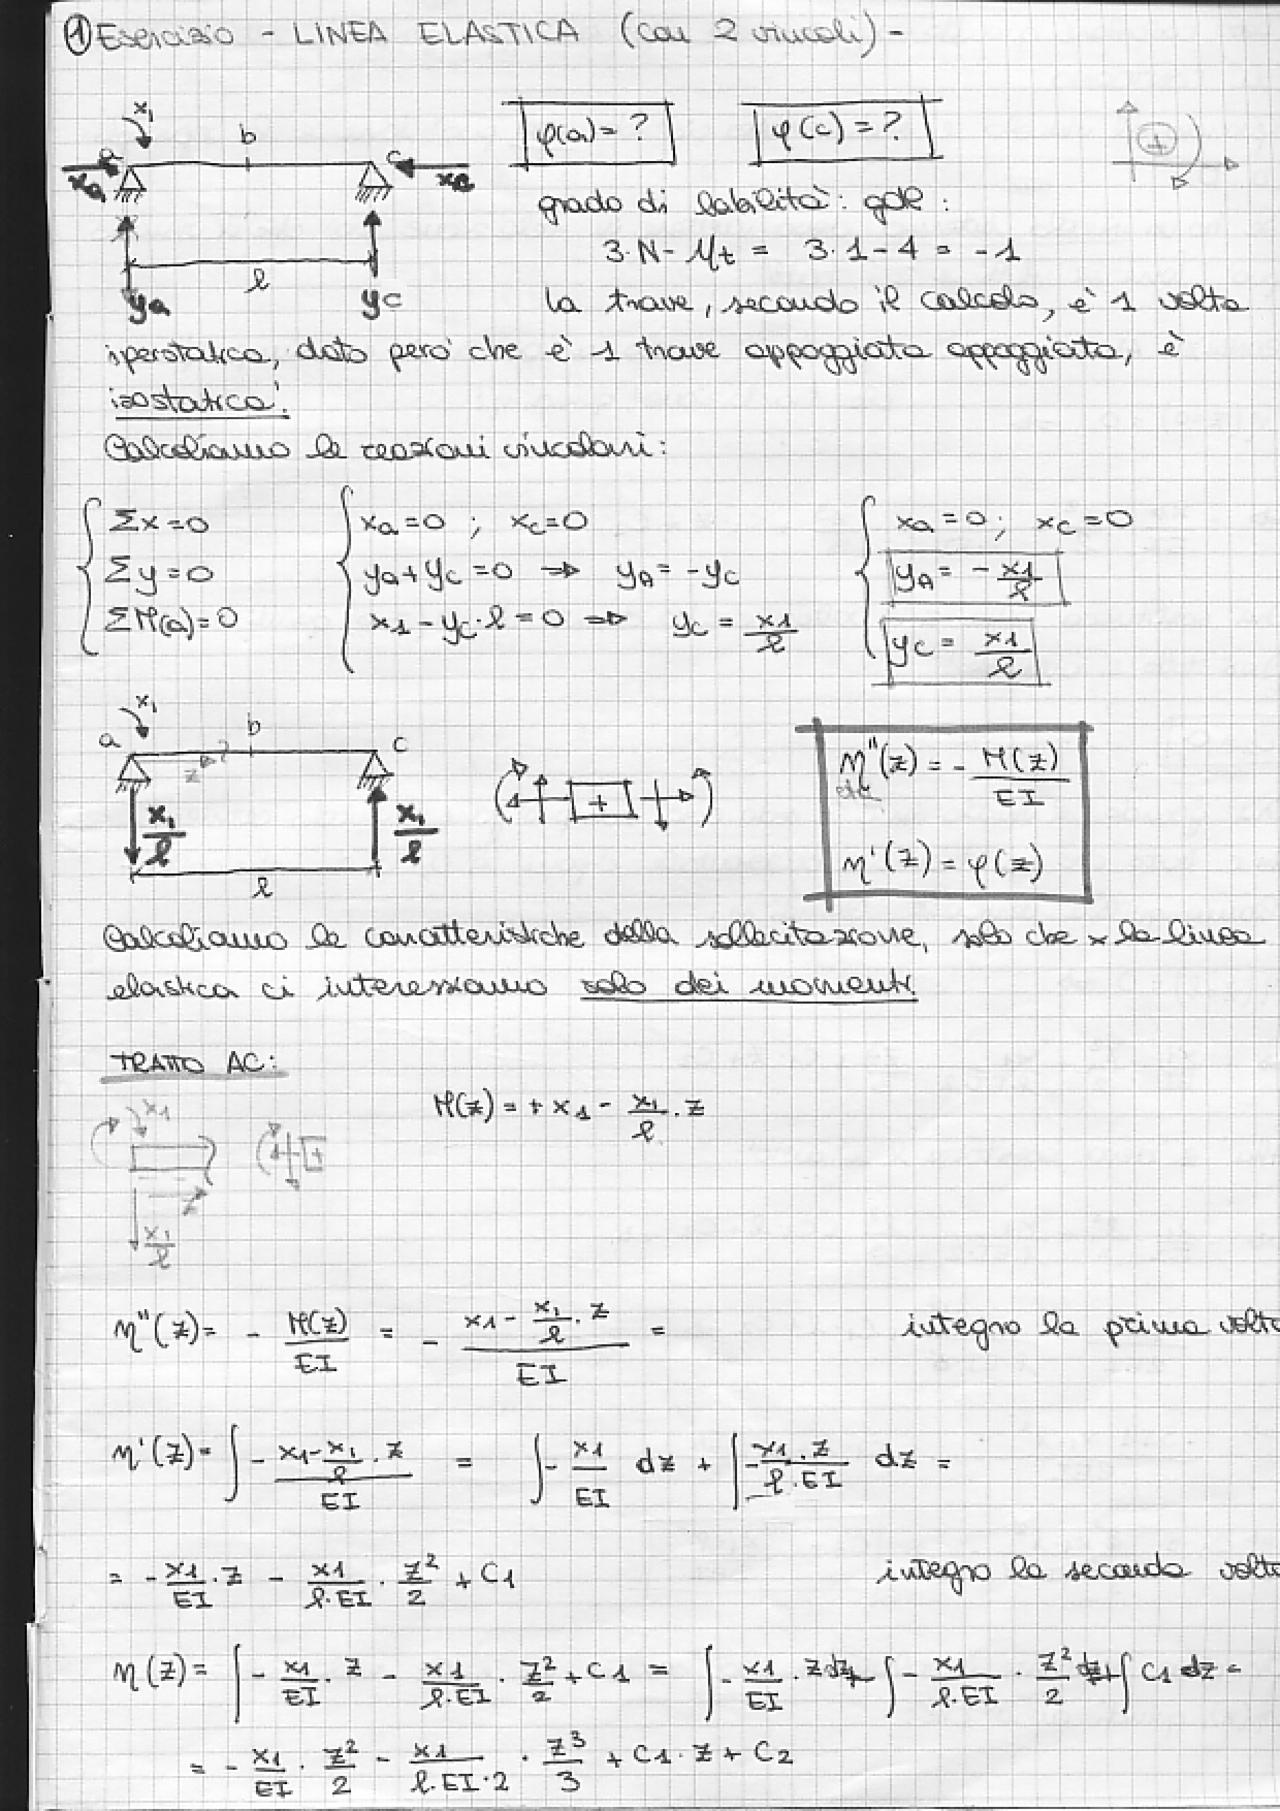 ① Esercizio - LINEA ELASTICA (con 2 vincoli) -
x₁
a b c
xa xc
l
ya yc
φ(a) = ? φ(c) = ?
+
grado di labilità: gdl :
3·N - Mt = 3·1 - 4 = -1
la trave, secondo il calcolo, è 1 volta
iperstatica, dato però che è 1 trave appoggiata appoggiata, è
isostatica!
Calcoliamo le reazioni vincolari:
Σx=0 xa=0 ; xc=0 xa=0 ; xc=0
Σy=0 ya+yc=0 ⇒ yA=-yc yA = - x1/l
ΣM(a)=0 x1 - yc·l = 0 ⇒ yc = x1/l yc = x1/l
x₁
a b c
z
x₁/l x₁/l
l
+
η''(z) = - M(z)/EI
eta
η'(z) = φ(z)
Calcoliamo le caratteristiche della sollecitazione, solo che x la linea
elastica ci interessiamo solo dei momenti.
TRATTO AC:
M(z) = + x1 - x₁/l · z
x1
z
+
x₁/l
η''(z) = - M(z)/EI = - (x1 - x₁/l · z)/EI = integro la prima volta
η'(z) = ∫ - (x1 - x₁/l · z)/EI = ∫ - x1/EI dz + ∫ - x1·z/l·EI dz =
= - x1/EI · z - x1/l·EI · z²/2 + C1 integro la seconda volta
η(z) = ∫ - x1/EI · z - x1/l·EI · z²/2 + C1 = ∫ - x1/EI · z dz + ∫ - x1/l·EI · z²/2 dz + ∫ C1 dz =
= - x1/EI · z²/2 - x1/l·EI·2 · z³/3 + C1·z + C2